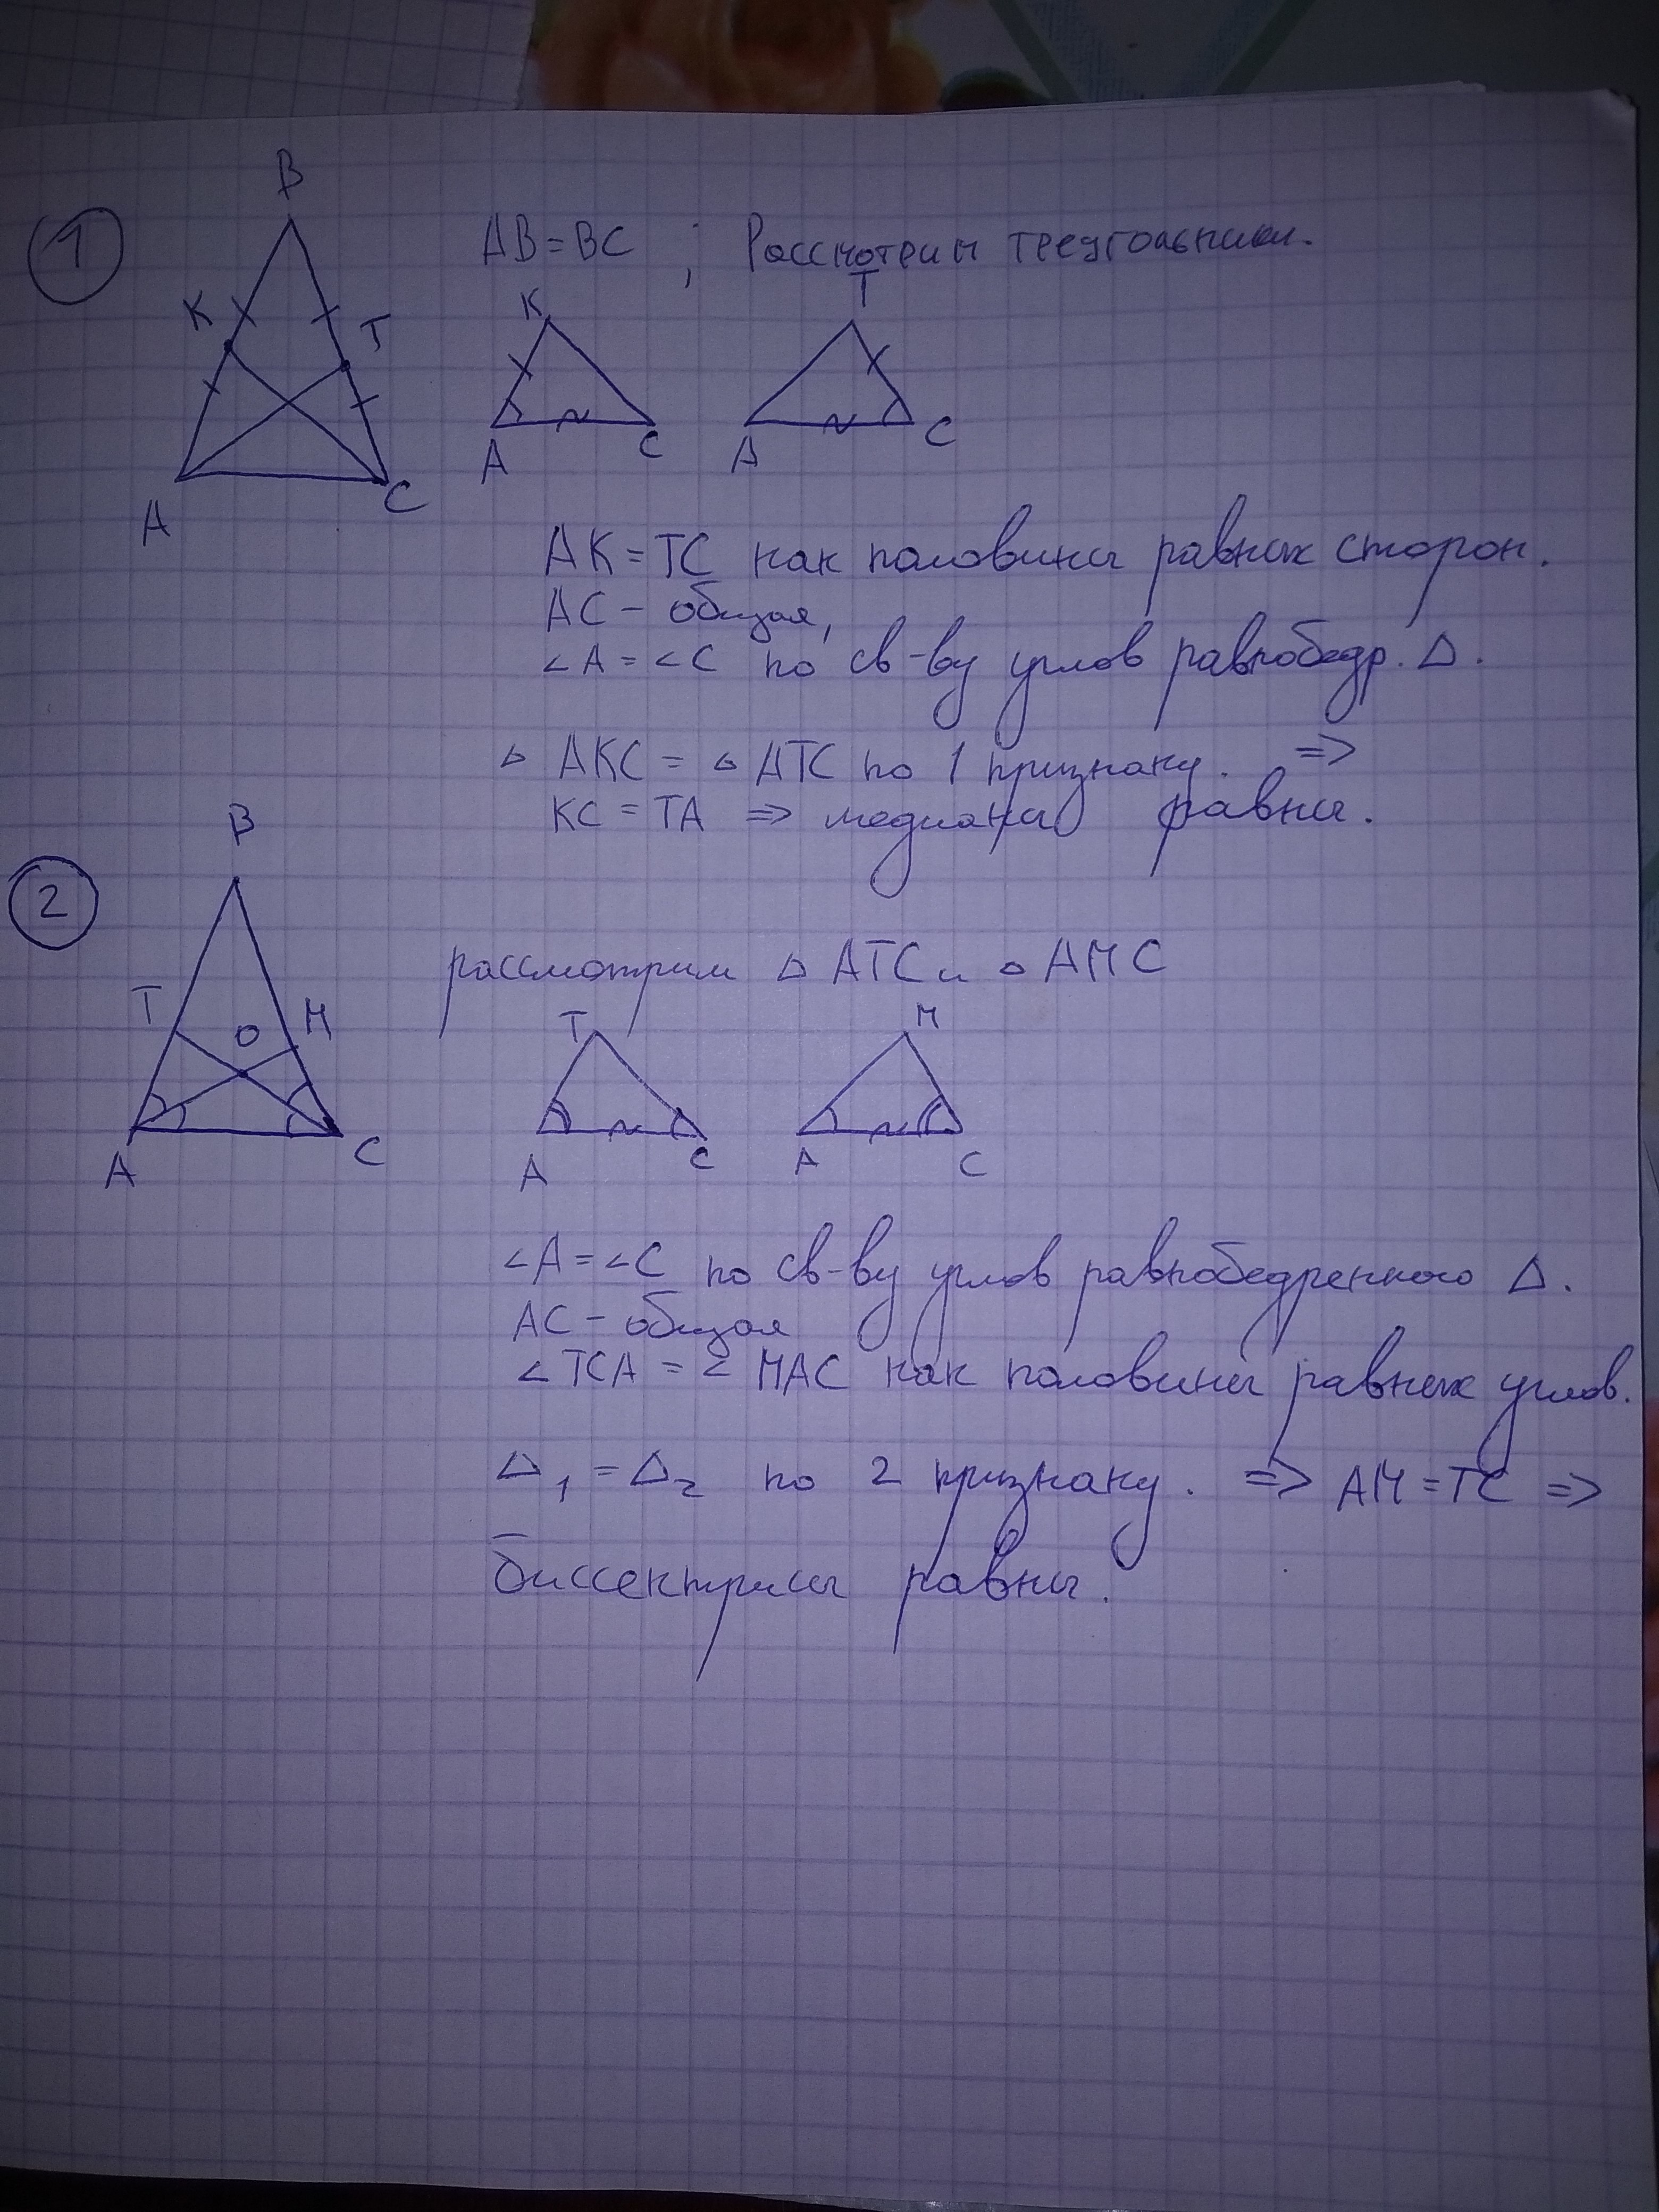 1
B
AB=BC ; Рассмотрим треугольники.
K
T
A
C
K
A
C
T
A
C
AK=TC как половины равных сторон.
AC - общая,
∠A=∠C по св-ву углов равнобедр. Δ.
Δ AKC = Δ ATC по 1 признаку. =>
KC = TA => медианы равны.
2
B
рассмотрим Δ ATC и Δ AMC
T
O
M
A
C
T
A
C
M
A
C
∠A=∠C по св-ву углов равнобедренного Δ.
AC - общая
∠TCA = ∠MAC как половины равных углов.
Δ₁ = Δ₂ по 2 признаку. => AM=TC =>
биссектрисы равны.